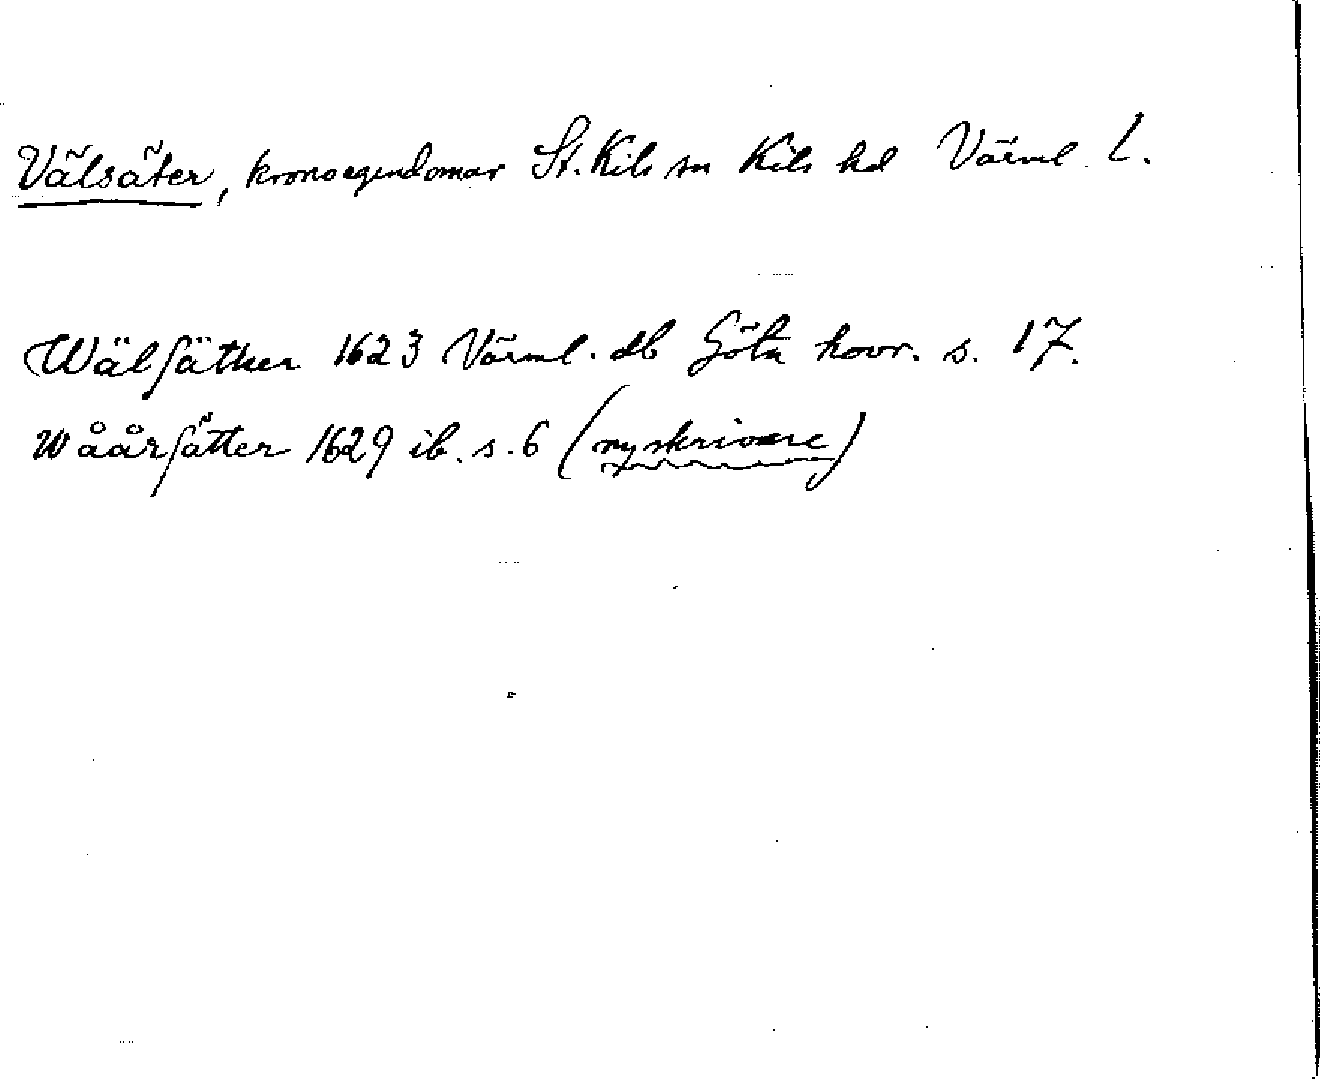 Välsäter, kronoegendomar St. Kils sn Kils hd Värml. l.
Wälſäther 1623 Värml. db Göta hovr. s. 17.
Wåårſätter 1629 ib. s. 6 (ny skrivare)